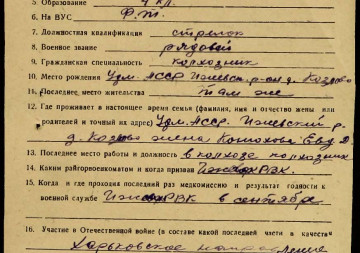 5. Образование 4 кл.
6. На ВУС
7. Должностная квалификация стрелок
8. Военное звание рядовой
9. Гражданская специальность колхозник
10. Место рождения Удм. АССР Ижевск. р-он д.
11. Последнее место жительства там же
12. Где проживает в настоящее время семья (фамилия, имя и отчество жены или
родителей и точный их адрес) Удм. АССР. Ижевский р.
д. жена Евд. Д
13. Последнее место работы и должность в колхозе колхозник
14. Каким райгорвоенкоматом и когда призван Ижев РВК.
15. Когда и где проходил последний раз медкомиссию и результат годности к
военной службе Ижев РВК в сентябре
16. Участие в Отечественной войне (в составе какой последней части в качестве
Харьковское направление